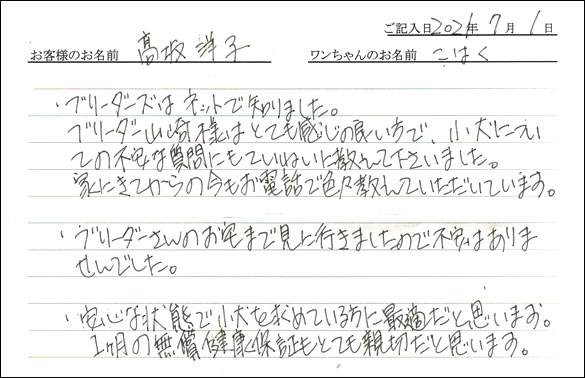 ご記入日2021年 7月 1日
お客様のお名前 髙坂洋子 ワンちゃんのお名前 こはく
・ブリーダーズはネットで知りました。
ブリーダー山崎様はとても感じの良い方で、小犬について
ての不安な質問にもていねいに教えて下さいました。
家にきてからの今もお電話で色々教えていただいています。
・ブリーダーさんのお宅まで見に行きましたので不安はありま
せんでした。
・安心な状態で小犬を求めている方に最適だと思います。
1ヶ月の無償健康保証もとても親切だと思います。